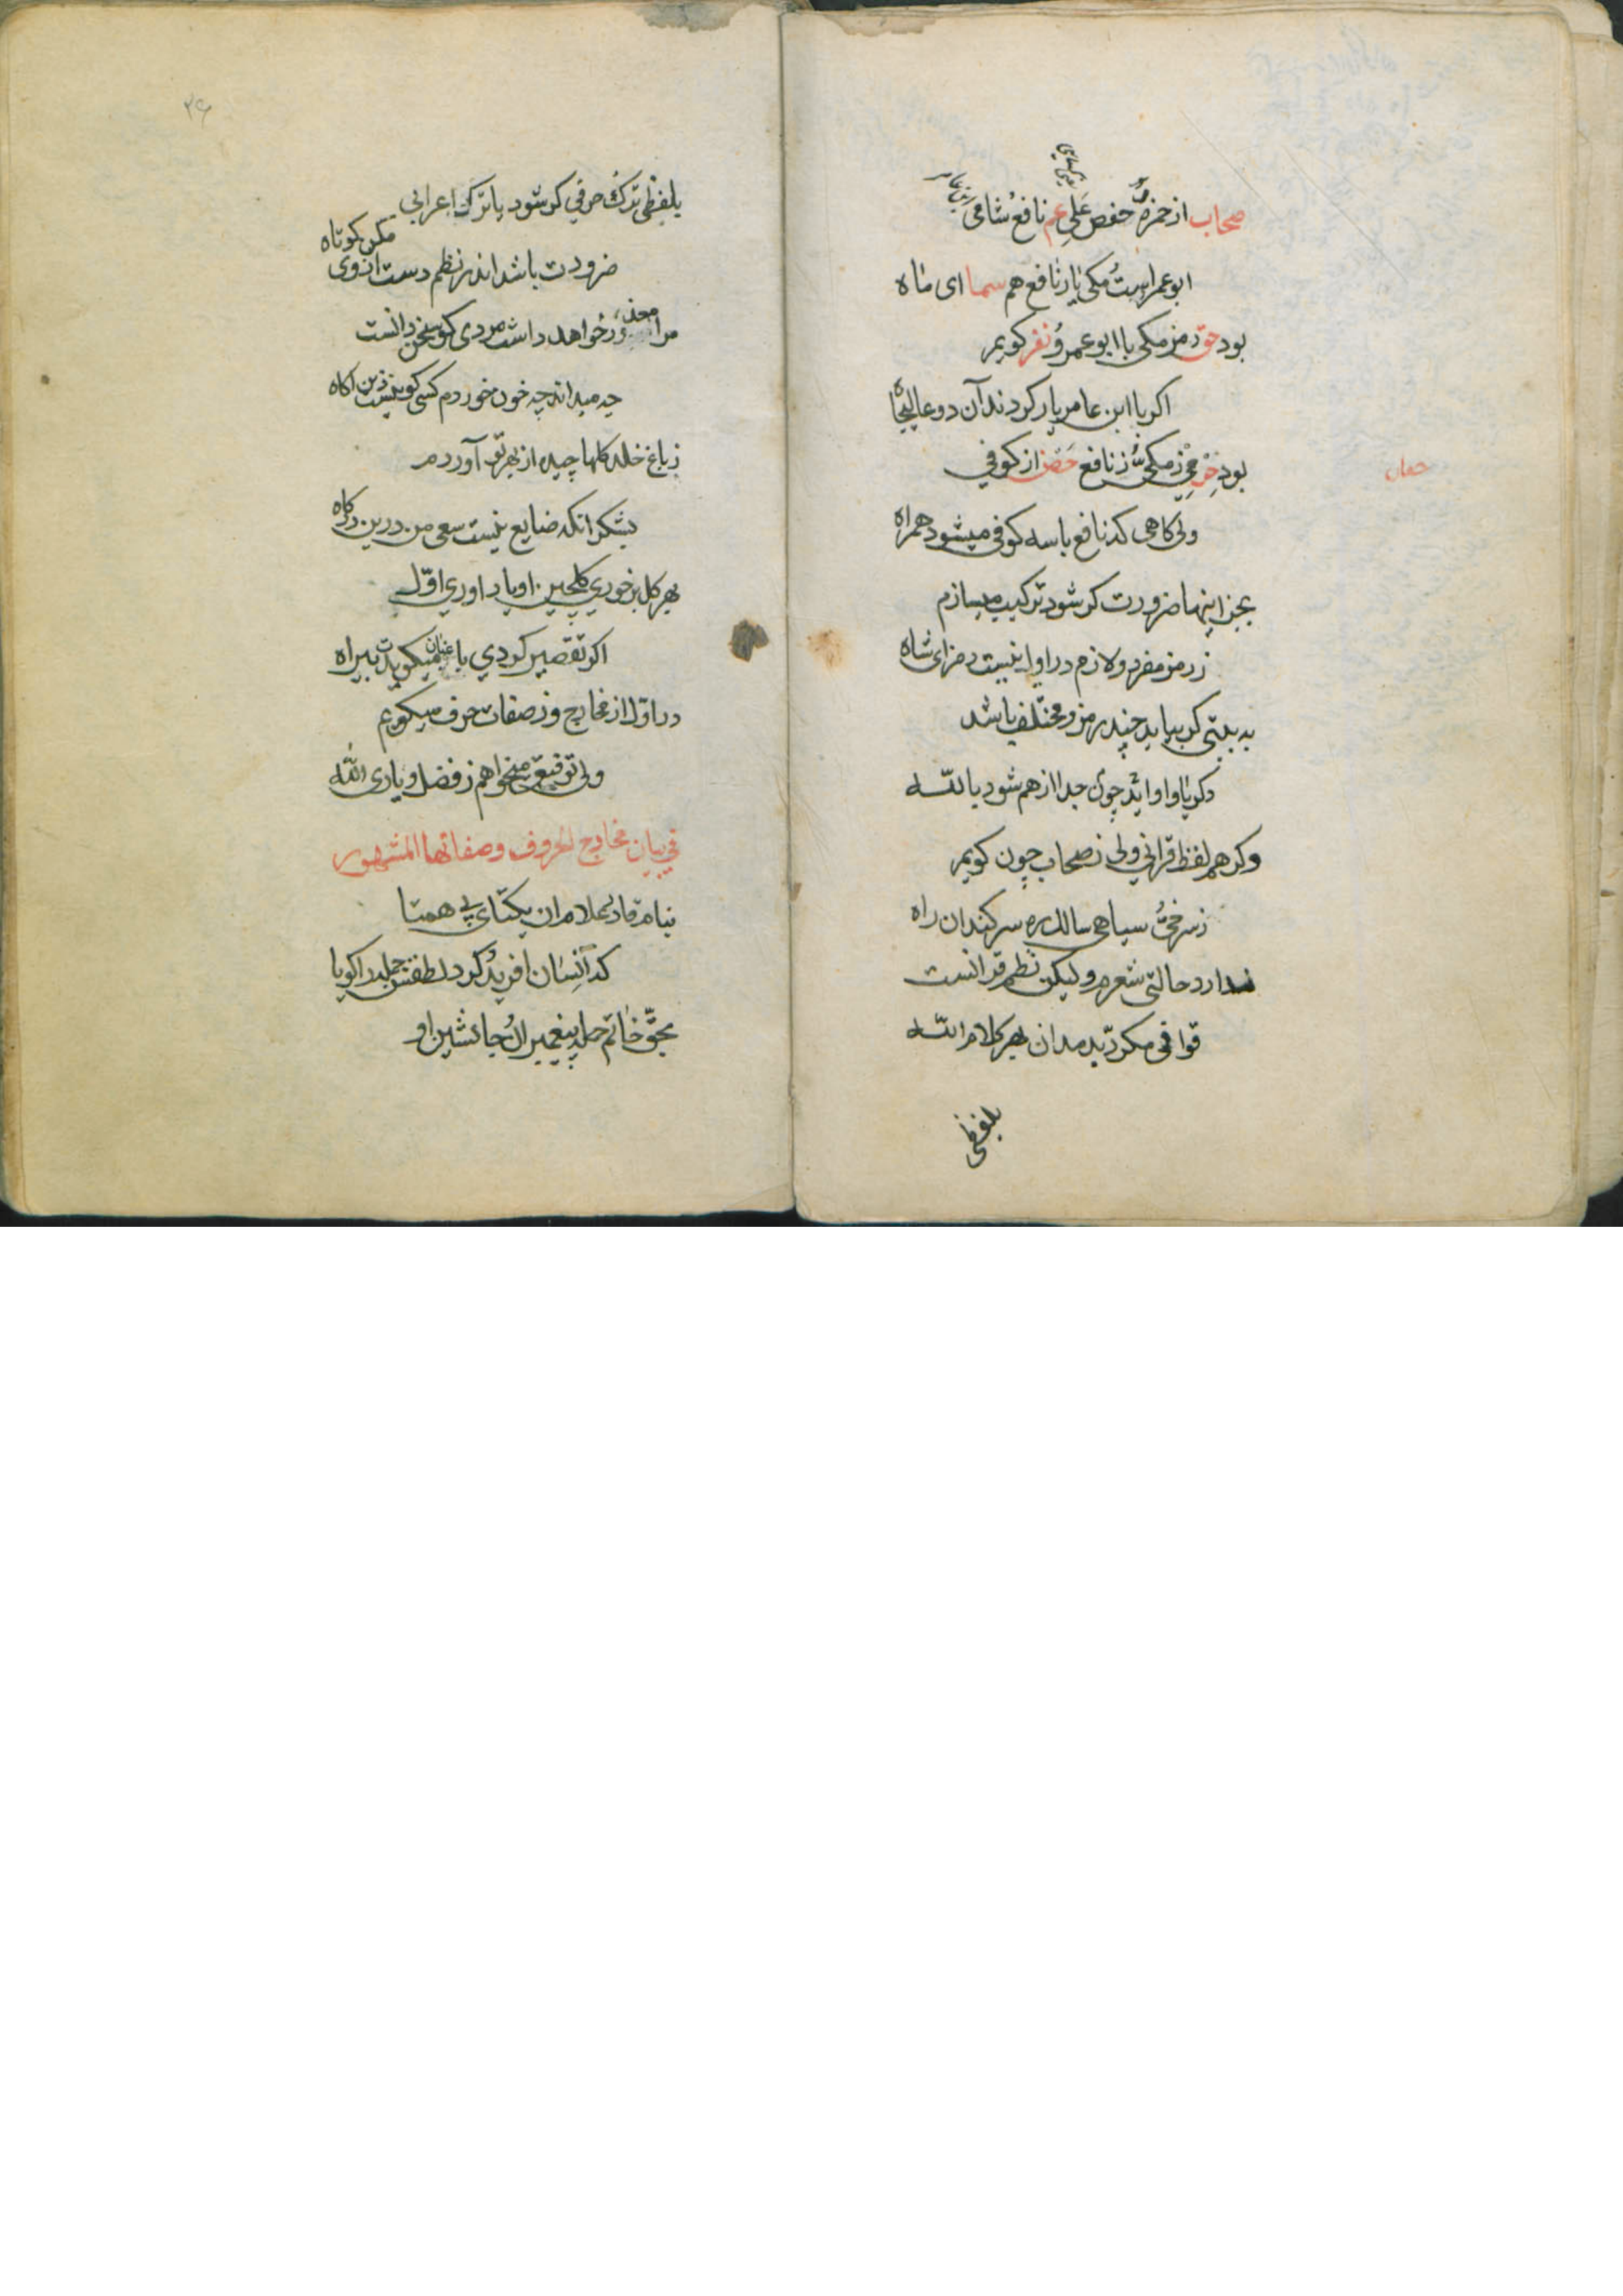 صحاب از حمزه حفص علی عم نافع شامی
ابو عمر است مکی یار نافع هم سما ای ماه
بود حق رمز مکی با ابو عمرو نفر کویم
اکر با ابن عامر یار کردند آن دو عالیجاه
بود حرمی ز مکی ز نافع حصن از کوفی
ولی کاهی که نافع با سه کوفی میشود همراه
بجز اینها ضرورت کر شود ترکیب میسازم
ز رمز مفرد ولازم در او نیست رمز ای شاه
به بیتی کر بیاید چند رمز و مختلف باشد
دکر یا واو اید چون جدا از هم شود بالله
وکر هم لفظ قرانی ولی ز صحاب چون کویم
ز سرخی سیاهی سالک ره سر کند ان راه
ندارد حالتی شعرم ولیکن نظم قرانست
قوافی مکرر بد مدان بهر کلام الله
بلفظی
۲۶
بلفظی ترک حرفی کر شود یا ترک اعرابی
ضرورت باشد اندر نظم دست از وی مکن کوتاه
مرا معذور خواهد داشت مردی کو سخن دانست
چه میداند چه خون خوردم کسی کو نیست زین اکاه
ز باغ خلد کلها چیده از بهر تو آوردم
بشکر انکه ضایع نیست سعی من درین درکاه
بهر کل بر خوری کلچین او یاد اوری اول
اکر تقصیر کردی باغبان میکویدت بیراه
در اول از مخارج وز صفات حرف میکویم
ولی توفیق میخواهم ز فضل و یاری الله
فی بیان مخارج الحروف وصفاتها المشهور
بنام قادر علام ان یکتای بی همتا
که انسان افرید کرد لطفش جمله را کویا
بحق خاتم جمله پیغمبران جانشین او